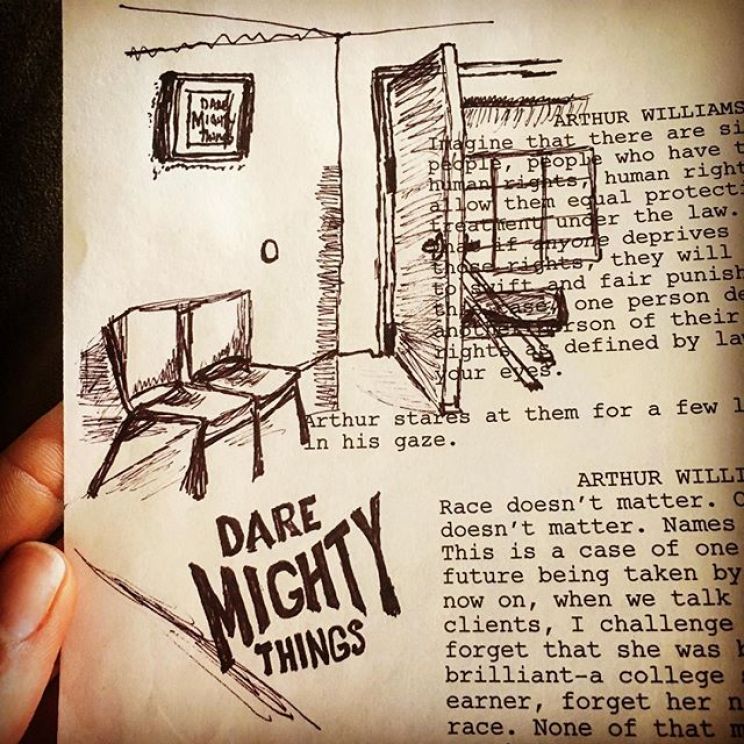 DARE
MIGHTY
THINGS
ARTHUR WILLIAMS
Imagine that there are si
people, people who have t
human rights, human right
allow them equal protecti
treatment under the law.
that if anyone deprives
those rights, they will
to swift and fair punish
this case, one person de
another person of their
rights as defined by la
your eyes.
Arthur stares at them for a few l
in his gaze.
ARTHUR WILLI
Race doesn't matter. C
doesn't matter. Names
This is a case of one
future being taken by
now on, when we talk
clients, I challenge
forget that she was b
brilliant-a college s
earner, forget her n
race. None of that m
DARE
MIGHTY
THINGS